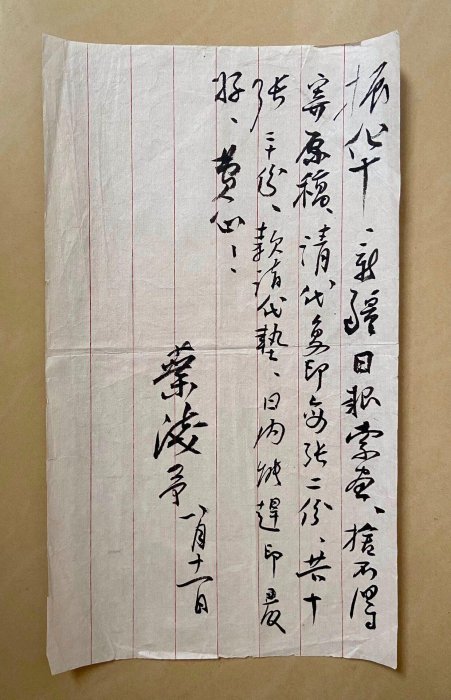 振华、新疆日报索画、捨不得
寄原稿、请代复印每张二份、共十
张二十份、款请代垫、日内能趕印最
好、费心！、
叶浅予 八月十一日